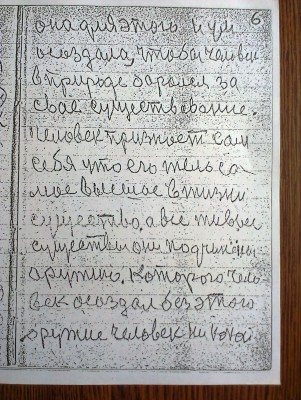 6
она для этого и уш
о создала, чтобы человек
в природе боролся за
свае существование.
Человек признает сам
себя что его тело са
мое высшее в жизни
существо, а все живые
существа они подчинены
оружию. Которого чело
век о создал без этого
оружие человек никокой